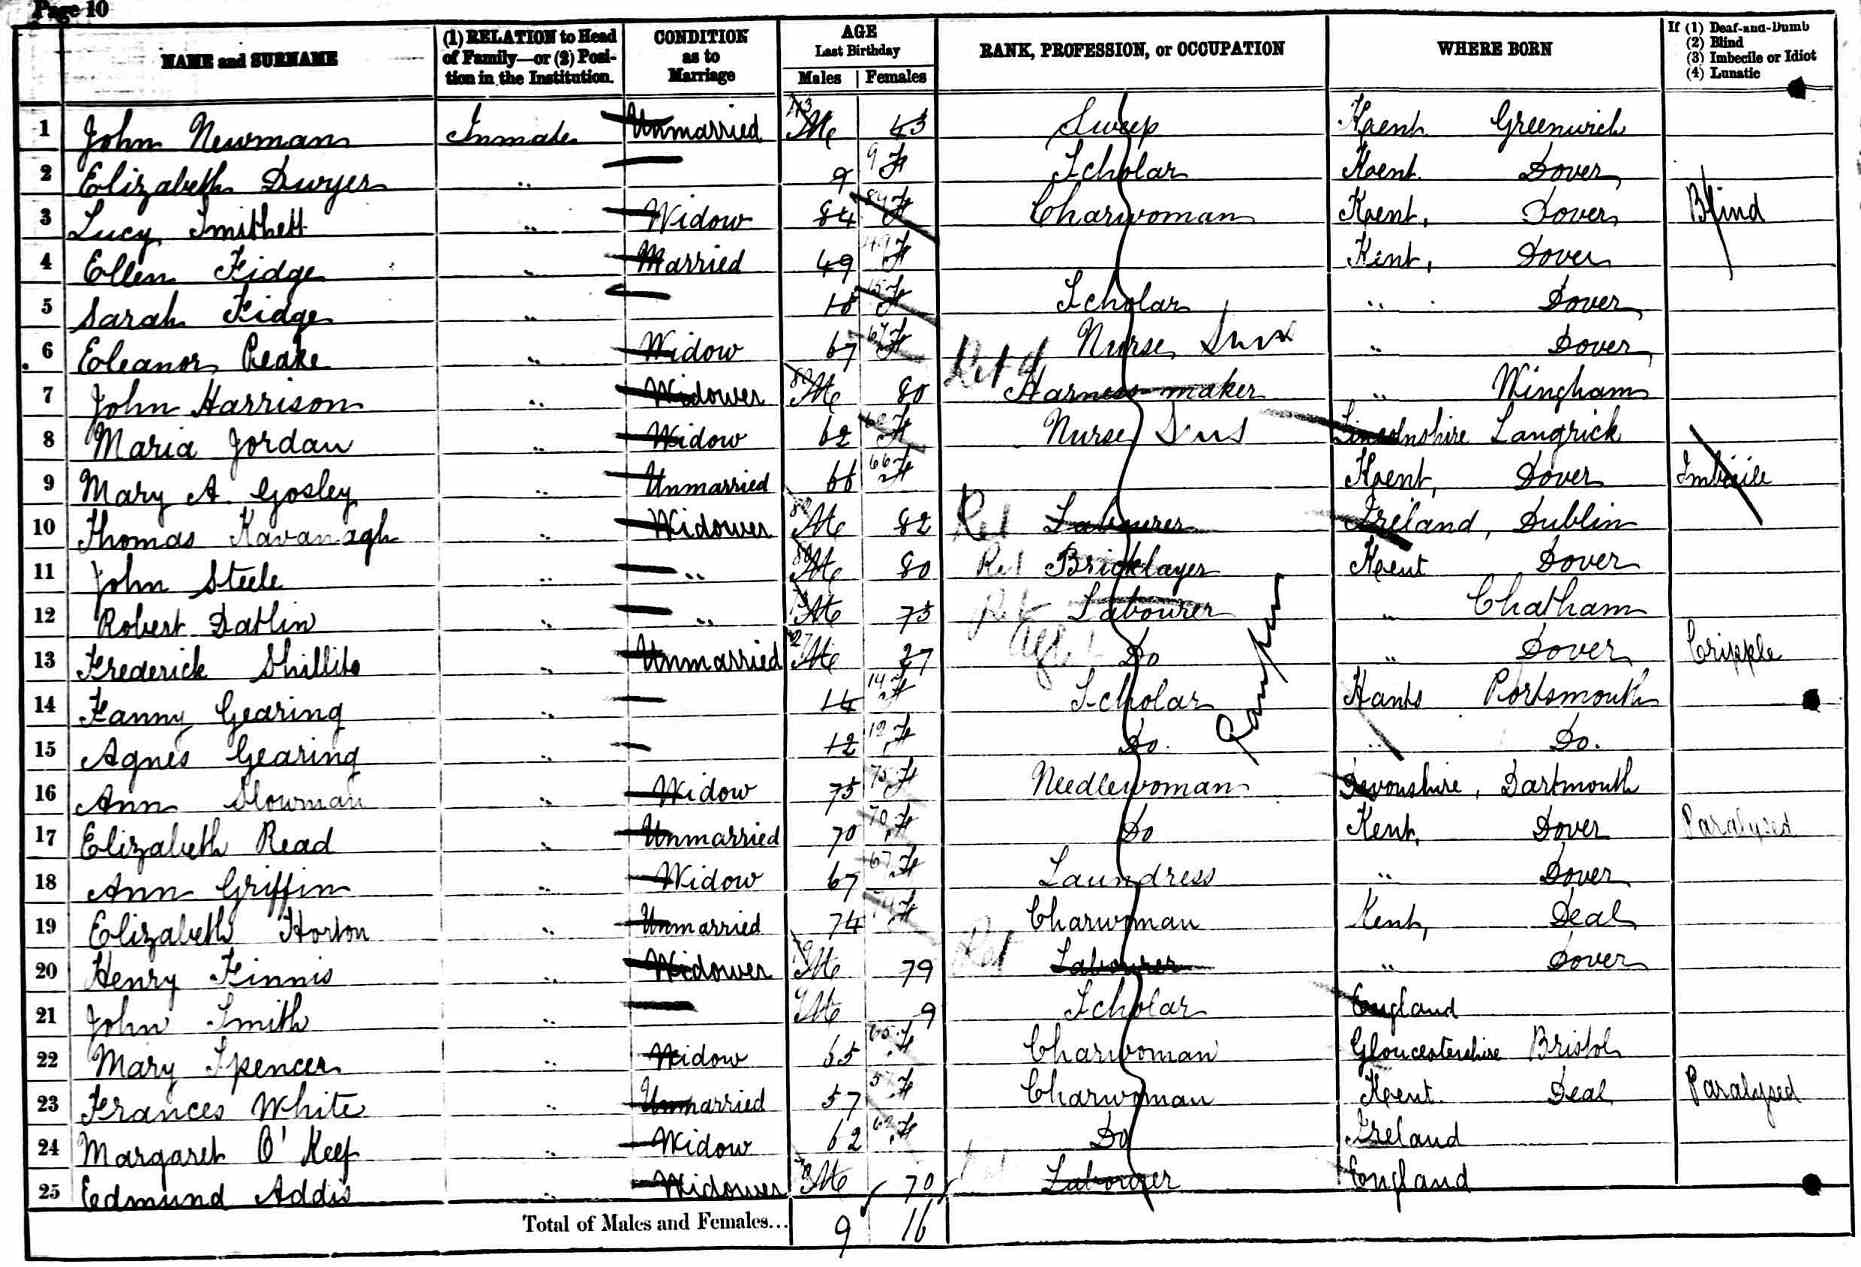 Page 10
NAME and SURNAME (1) RELATION to Head of Family—or (2) Position in the Institution. CONDITION as to Marriage AGE Last Birthday Males Females RANK, PROFESSION, or OCCUPATION WHERE BORN If (1) Deaf-and-Dumb (2) Blind (3) Imbecile or Idiot (4) Lunatic
1 John Newman Inmate Unmarried 43 M 43 Sweep Kent Greenwich
2 Elizabeth Dwyer " 9 9 F Scholar Kent Dover
3 Lucy Smithett " Widow 84 84 F Charwoman Kent, Dover Blind
4 Ellen Fidge " Married 49 49 F Kent, Dover
5 Sarah Fidge " 15 15 F Scholar " Dover
6 Eleanor Peake " Widow 67 67 F Nurse " Dover
7 John Harrison " Widower 80 M 80 Ret d Harness maker " Wingham
8 Maria Jordan " Widow 62 62 F Nurse Lincolnshire Langrick
9 Mary A. Gosley " Unmarried 66 66 F Kent, Dover Imbicile
10 Thomas Kavanagh " Widower 82 M 82 Ret Labourer Ireland, Dublin
11 John Steele " " 80 M 80 Ret Bricklayer Kent Dover
12 Robert Datlin " " M 73 Ret Labourer " Chatham
13 Frederick Shillito " Unmarried 27 M 27 Do " Dover Cripple
14 Fanny Gearing " 14 14 F Scholar Hants Portsmouth
Pauper
15 Agnes Gearing " 12 12 F Do. " Do.
16 Ann Slowman " Widow 75 75 F Needlewoman Devonshire, Dartmouth
17 Elizabeth Read " Unmarried 70 70 F Do Kent, Dover Paralysed
18 Ann Griffin " Widow 67 67 F Laundress " Dover
19 Elizabeth Horton " Unmarried 74 74 F Charwoman Kent, Deal
20 Henry Finnis " Widower M 79 Ret Labourer " Dover
21 John Smith " 9 M 9 Scholar England
22 Mary Spencer " Widow 65 65 F Charwoman Gloucestershire Bristol
23 Frances White " Unmarried 57 57 F Charwoman Kent Deal Paralysed
24 Margaret O'Keef " Widow 62 62 F Do Ireland
25 Edmund Addis " Widower 70 M 70 Labourer England
Total of Males and Females... 9 16